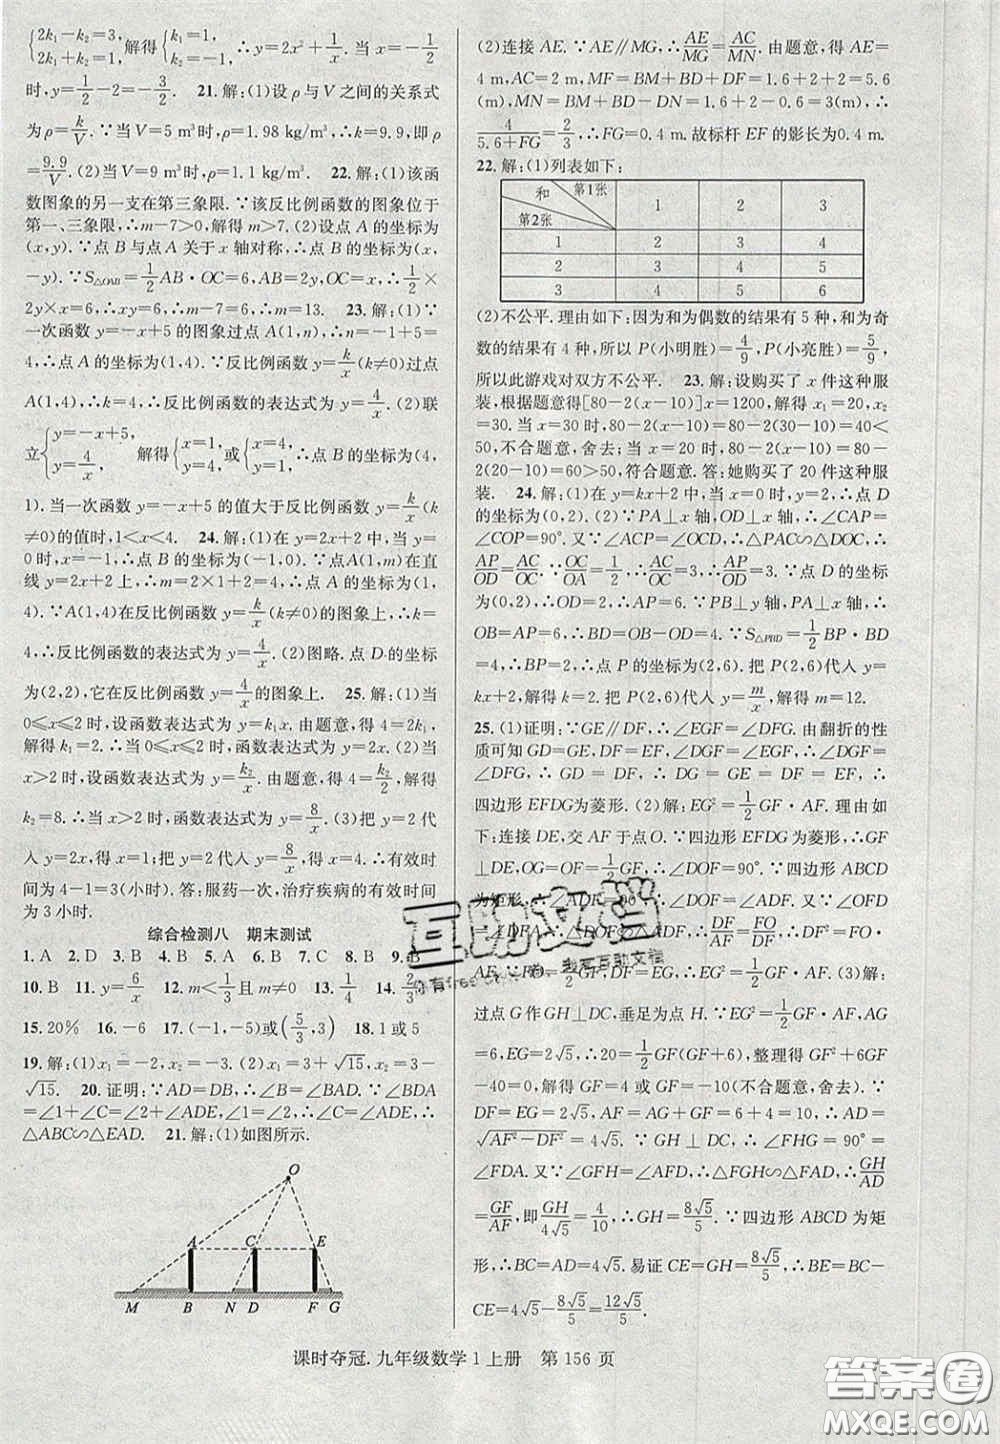 {2k₁-k₂=3, 2k₁+k₂=1, 解得{k₁=1, k₂=-1, ∴y=2x²+1/x. 当 x=-1/2
时,y=1/2-2=-3/2. 21.解:(1)设 ρ 与 V 之间的关系式
为 ρ=k/V. ∵当 V=5 m³时,ρ=1.98 kg/m³,∴k=9.9,即 ρ
=9.9/V. (2)当 V=9 m³时,ρ=1.1 kg/m³. 22.解:(1)该函
数图象的另一支在第三象限. ∵该反比例函数的图象位于
第一、三象限,∴m-7>0,解得 m>7. (2)设点 A 的坐标为
(x,y). ∵点 B 与点 A 关于 x 轴对称,∴点 B 的坐标为(x,
-y). ∵S△OAB=1/2AB·OC=6,AB=2y,OC=x,∴1/2×
2y×x=6,∴xy=6,∴m-7=6,∴m=13. 23.解:(1)∵
一次函数 y=-x+5 的图象过点 A(1,n),∴n=-1+5=
4,∴点 A 的坐标为(1,4). ∵反比例函数 y=k/x(k≠0)过点
A(1,4),∴k=4,∴反比例函数的表达式为 y=4/x. (2)联
立{y=-x+5, y=4/x, 解得{x=1, y=4, 或{x=4, y=1, ∴点 B 的坐标为(4,
1). 当一次函数 y=-x+5 的值大于反比例函数 y=k/x(k
≠0)的值时,1<x<4. 24.解:(1)在 y=2x+2 中,当 y=
0 时,x=-1,∴点 B 的坐标为(-1,0). ∵点 A(1,m)在直
线 y=2x+2 上,∴m=2×1+2=4,∴点 A 的坐标为(1,
4). ∵A(1,4)在反比例函数 y=k/x(k≠0)的图象上,∴k=
4,∴反比例函数的表达式为 y=4/x. (2)图略. 点 D 的坐标
为(2,2),它在反比例函数 y=4/x的图象上. 25.解:(1)当
0≤x≤2 时,设函数表达式为 y=k₁x. 由题意,得 4=2k₁,
解得 k₁=2. ∴当 0≤x≤2 时,函数表达式为 y=2x. (2)当
x>2 时,设函数表达式为 y=k₂/x. 由题意,得 4=k₂/2,解得
k₂=8. ∴当 x>2 时,函数表达式为 y=8/x. (3)把 y=2 代
入 y=2x,得 x=1. 把 y=2 代入 y=8/x,得 x=4. ∴有效时
间为 4-1=3(小时). 答:服药一次,治疗疾病的有效时间
为 3 小时.
综合检测八 期末测试
1. A 2. D 3. B 4. B 5. A 6. B 7. C 8. A 9. B
10. B 11. y=6/x 12. m<1/3且 m≠0 13. 1/4 14. 2/3
15. 20% 16. -6 17. (-1,-5)或(5/3,3) 18. 1 或 5
19. 解:(1)x₁=-2,x₂=-3. (2)x₁=3+√15,x₂=3-
√15. 20. 证明:∵AD=DB,∴∠B=∠BAD. ∵∠BDA
=∠1+∠C=∠2+∠ADE,∠1=∠2,∴∠C=∠ADE,∴
△ABC∽△EAD. 21. 解:(1)如图所示.
O
A C E
M B N D F G
(2)连接 AE. ∵AE∥MG,∴AE/MG=AC/MN. 由题意,得 AE=
4 m,AC=2 m,MF=BM+BD+DF=1.6+2+2=5.6
(m),MN=BM+BD-DN=1.6+2-0.6=3(m),∴
4/(5.6+FG)=2/3,∴FG=0.4 m. 故标杆 EF 的影长为0.4 m.
22. 解:(1)列表如下:
和 第1张 第2张 1 2 3
1 2 3 4
2 3 4 5
3 4 5 6
(2)不公平. 理由如下:因为和为偶数的结果有 5 种,和为奇
数的结果有 4 种,所以 P(小明胜)=4/9,P(小亮胜)=5/9,
所以此游戏对双方不公平. 23. 解:设购买了 x 件这种服
装,根据题意得[80-2(x-10)]x=1200,解得 x₁=20,x₂
=30. 当 x=30 时,80-2(x-10)=80-2(30-10)=40<
50,不合题意,舍去;当 x=20 时,80-2(x-10)=80-
2(20-10)=60>50,符合题意. 答:她购买了 20 件这种服
装. 24. 解:(1)在 y=kx+2 中,当 x=0 时,y=2,∴点 D
的坐标为(0,2). (2)∵PA⊥x 轴,OD⊥x 轴,∴∠CAP=
∠COP=90°. 又∵∠ACP=∠OCD,∴△PAC∽△DOC,∴
AP/OD=AC/OC. ∵OC/OA=1/2,∴AC/OC=3,∴AP/OD=AC/OC=3. 又∵点 D 的坐标
为(0,2),∴OD=2,∴AP=6. ∵PB⊥y 轴,∴
OB=AP=6,∴BD=OB-OD=6-2=4. ∵S△PBD=1/2BP·BD
=4,∴BP=2,∴点 P 的坐标为(2,6). 把 P(2,6)代入 y=
kx+2,解得 k=2. 把 P(2,6)代入 y=m/x,解得 m=12.
25. (1)证明:∵GE∥DF,∴∠EGF=∠DFG. 由翻折的性
质可知 GD=GE,DF=EF,∠DGF=∠EGF,∴∠DGF
=∠DFG,∴GD=DF,∴DG=GE=DF=EF,∴
四边形 EFDG为菱形. (2)解:EG²=1/2GF·AF. 理由如
下:连接 DE,交 AF 于点O. ∵四边形 EFDG 为菱形,∴GF
⊥DE,OG=OF=1/2GF,∴∠DOF=90°. ∵四边形 ABCD
为矩形,∴∠ADF=90°,∴∠DOF=∠ADF=90°,
∠DFA,∴△DOF∽△ADF,∴DF/AF=FO/DF,∴DF²=FO·
AF. ∵FO=1/2GF,DF=EG,∴EG²=1/2GF·AF. (3)解:
过点 G 作 GH⊥DC,垂足为点 H. ∵EG²=1/2GF·AF,AG
=6,EG=2√5,∴20=1/2GF(GF+6),整理得 GF²+6GF
-40=0,解得 GF=4 或 GF=-10(不合题意,舍去).
√(AF²-DF²)=4√5. ∵GH⊥DC,∴∠FHG=90°=
∠FDA. 又∵∠GFH=∠AFD,∴△FGH∽△FAD,∴GH/AD
=GF/AF,即GH/4√5=4/10,∴GH=8√5/5. ∵四边形 ABCD 为矩
形,∴BC=AD=4√5. 易证 CE=GH=8√5/5,∴BE=BC-
CE=4√5-8√5/5=12√5/5.
课时夺冠.九年级数学1上册 第 156 页
互助文档
答案圈
MXQE.COM